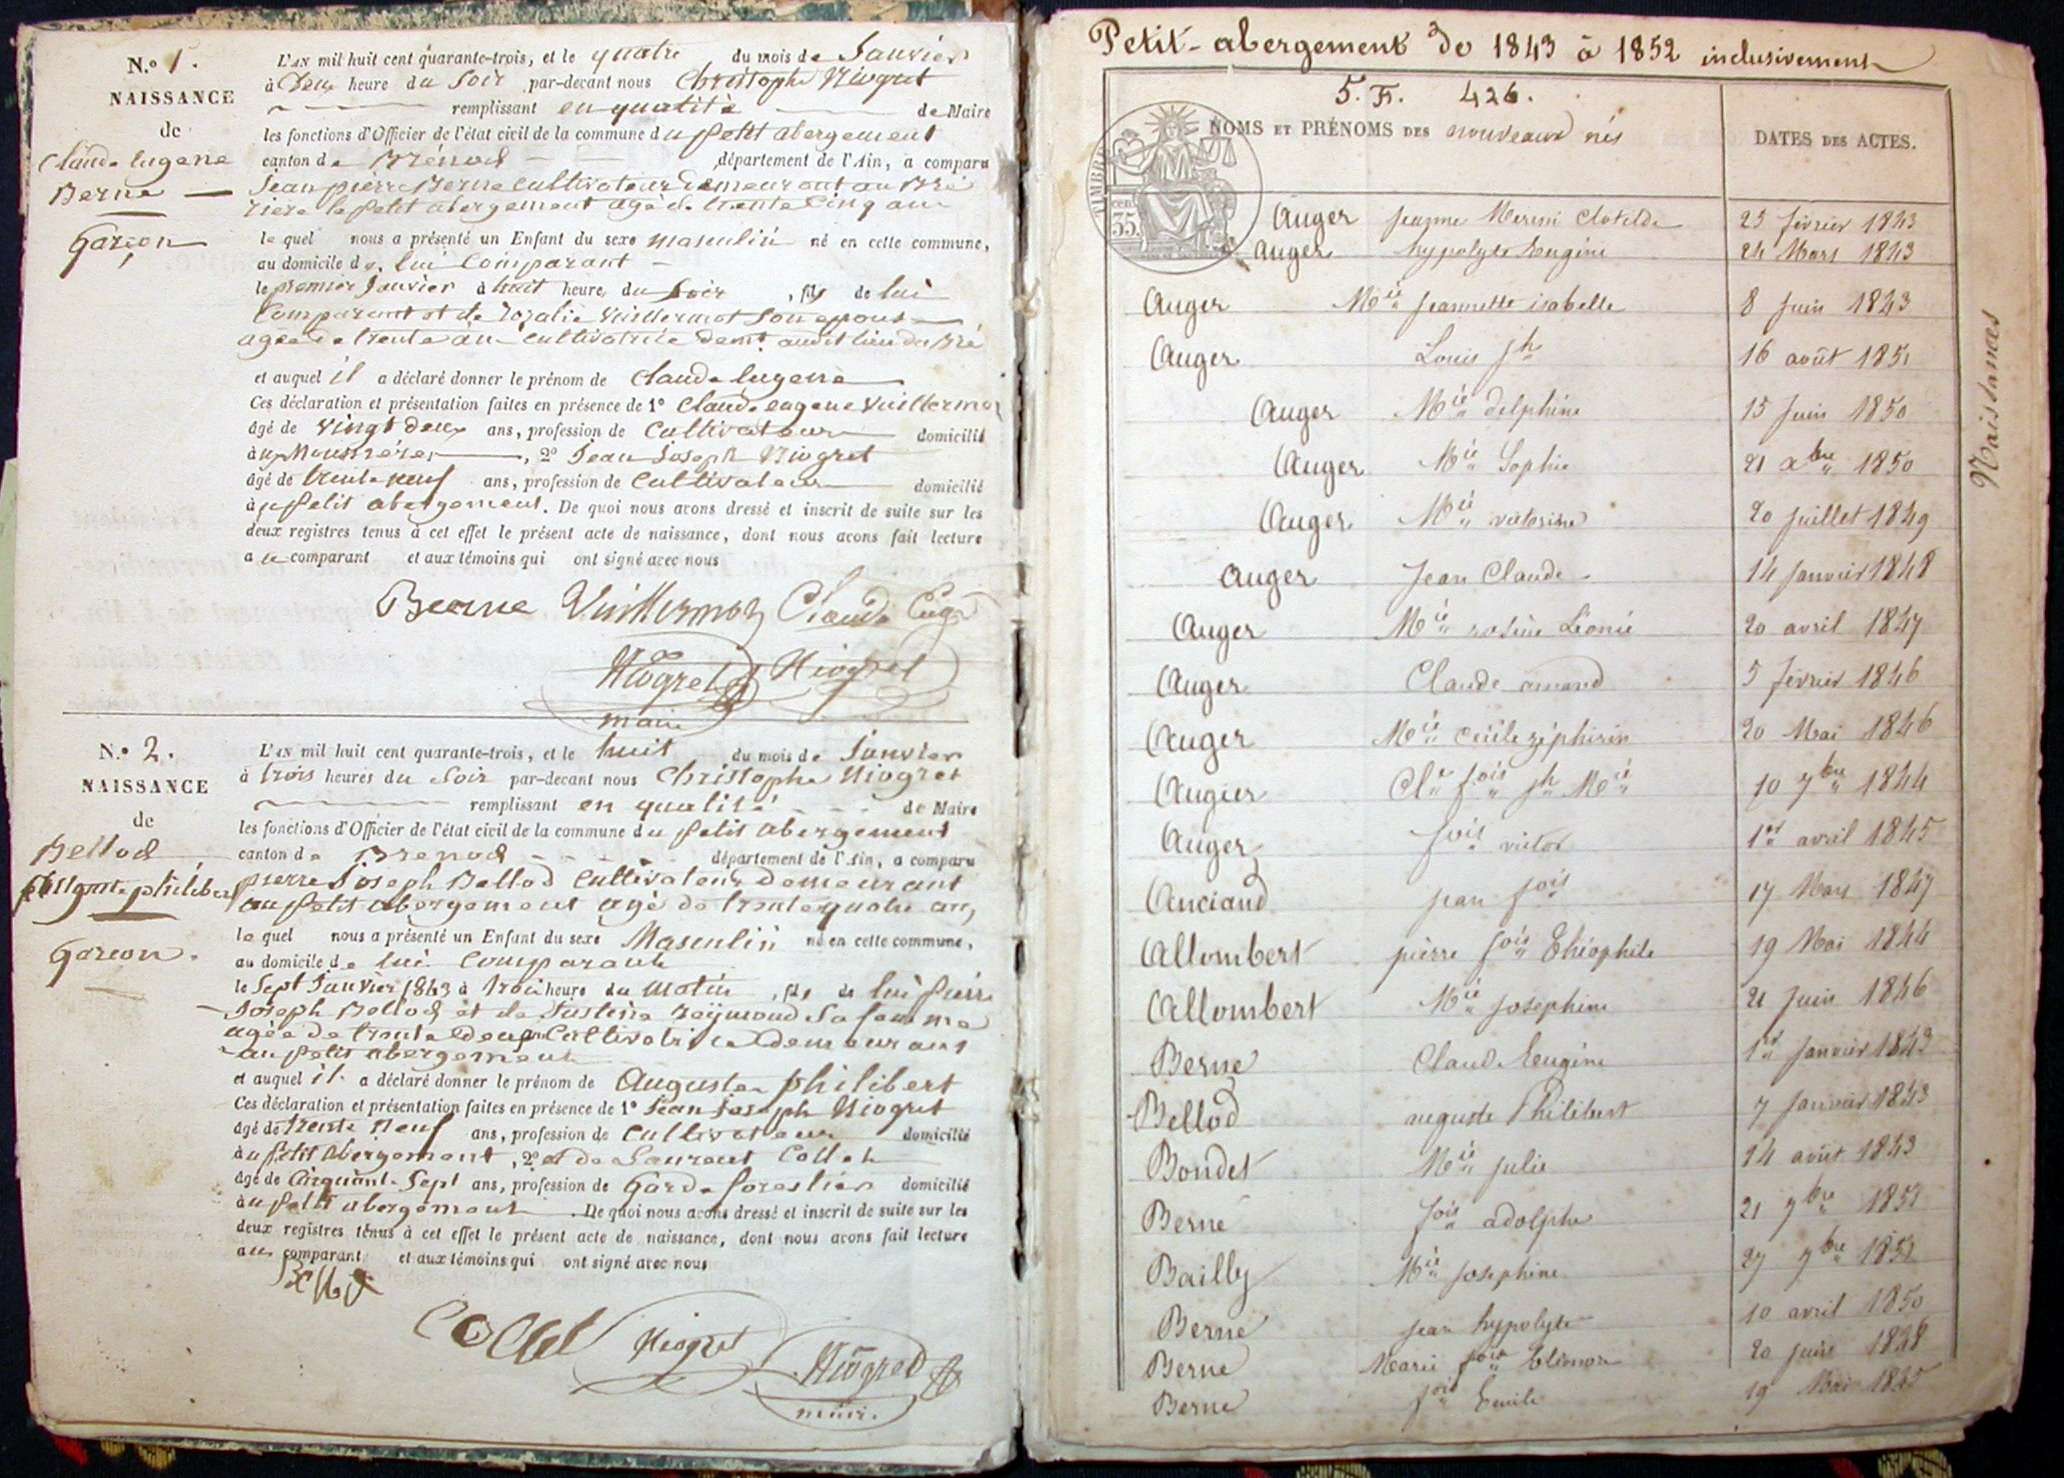 N.º 1.
NAISSANCE
de
Claude Eugene
Berne
Garçon
L'AN mil huit cent quarante-trois, et le quatre du mois de Janvier
à Deux heure du Soir par-devant nous Christophe Niogret
remplissant en qualité de Maire
les fonctions d'Officier de l'état civil de la commune du petit abergement
canton de Brénod département de l'Ain, a comparu
Jean pierre Berne cultivateur demeurant au
le petit abergement agé de trente cinq ans
lequel nous a présenté un Enfant du sexe masculin né en cette commune,
au domicile de lui Comparant
le premier Janvier à huit heure du Soir, fils de lui
Comparant et de Rozalie Vuillermot son epouse
agée de trente ans cultivatrice demt. audit lieu du
et auquel il a déclaré donner le prénom de Claude Eugene
Ces déclaration et présentation faites en présence de 1º Claude eugene Vuillermoz
âgé de vingt deux ans, profession de Cultivateur domicilié
à , 2º Jean Joseph Niogret
âgé de trente neuf ans, profession de Cultivateur domicilié
à u petit abergement. De quoi nous avons dressé et inscrit de suite sur les
deux registres tenus à cet effet le présent acte de naissance, dont nous avons fait lecture
au comparant et aux témoins qui ont signé avec nous
Berne Vuillermoz Claude Eug
Niogret Niogret
maire
N.º 2.
NAISSANCE
de
Bellod
auguste philibert
Garcon.
L'AN mil huit cent quarante-trois, et le huit du mois de Janvier
à trois heures du Soir par-devant nous Christophe Niogret
remplissant en qualité de Maire
les fonctions d'Officier de l'état civil de la commune du petit abergement
canton de Brenod département de l'Ain, a comparu
pierre Joseph Bellod Cultivateur demeurant
au petit abergement agé de trente quatre ans,
lequel nous a présenté un Enfant du sexe Masculin né en cette commune,
au domicile de lui Comparant
le Sept Janvier 1843 à trois heure du matin, fils de lui pierre
Joseph Bellod et de Justine Reymond Sa femme
agée de trente Deux Cultivatrice demeurant
au petit abergement
et auquel il a déclaré donner le prénom de Auguste philibert
Ces déclaration et présentation faites en présence de 1º Jean Joseph Niogret
âgé de trente neuf ans, profession de Cultivateur domicilié
à u petit abergement, 2º et de Laurent Collet
âgé de Cinquante Sept ans, profession de Garde forestier domicilié
à u petit abergement. De quoi nous avons dressé et inscrit de suite sur les
deux registres tenus à cet effet le présent acte de naissance, dont nous avons fait lecture
au comparant et aux témoins qui ont signé avec nous
Bellod
Collet Niogret Niogret
maire.
Petit-abergement de 1843 à 1852 inclusivement
5. F. 426.
NOMS ET PRÉNOMS DES nouveaux nés
DATES DES ACTES.
TIMBRE
35.
Auger Jeanne Clotilde 23 février 1843
Auger hypolyte Eugéni 24 Mars 1843
Auger Mie Jeannette isabelle 8 Juin 1843
Auger Louis Jh 16 août 1851
Auger Mie delphine 15 Juin 1850
Auger Mie Sophie 21 xbre 1850
Auger Mie victorine 20 Juillet 1849
Auger Jean Claude 14 Janvier 1848
Auger Mie rosine Léonie 20 avril 1847
Auger Claude amand 5 février 1846
Auger Mie cécile zéphirin 20 Mai 1846
Augier Cle fois jh Mie 10 7bre 1844
Auger fois victor 1er avril 1845
Anciand jean fois 17 Mars 1847
Allombert pierre fois Théophile 19 Mai 1844
Allombert Mie Josephine 21 Juin 1846
Berne Claude Eugène 1er Janvier 1843
Bellod auguste Philibert 7 Janvier 1843
Bondet Mie Julie 14 août 1843
Berne fois adolphe 21 7bre 1852
Bailly Mie Josephine 27 7bre 1852
Berne jean hypolyte 10 avril 1850
Berne Marie foise Eléonor 20 Juin 1848
Berne fois Emile 19 Mai 1845
Naissances